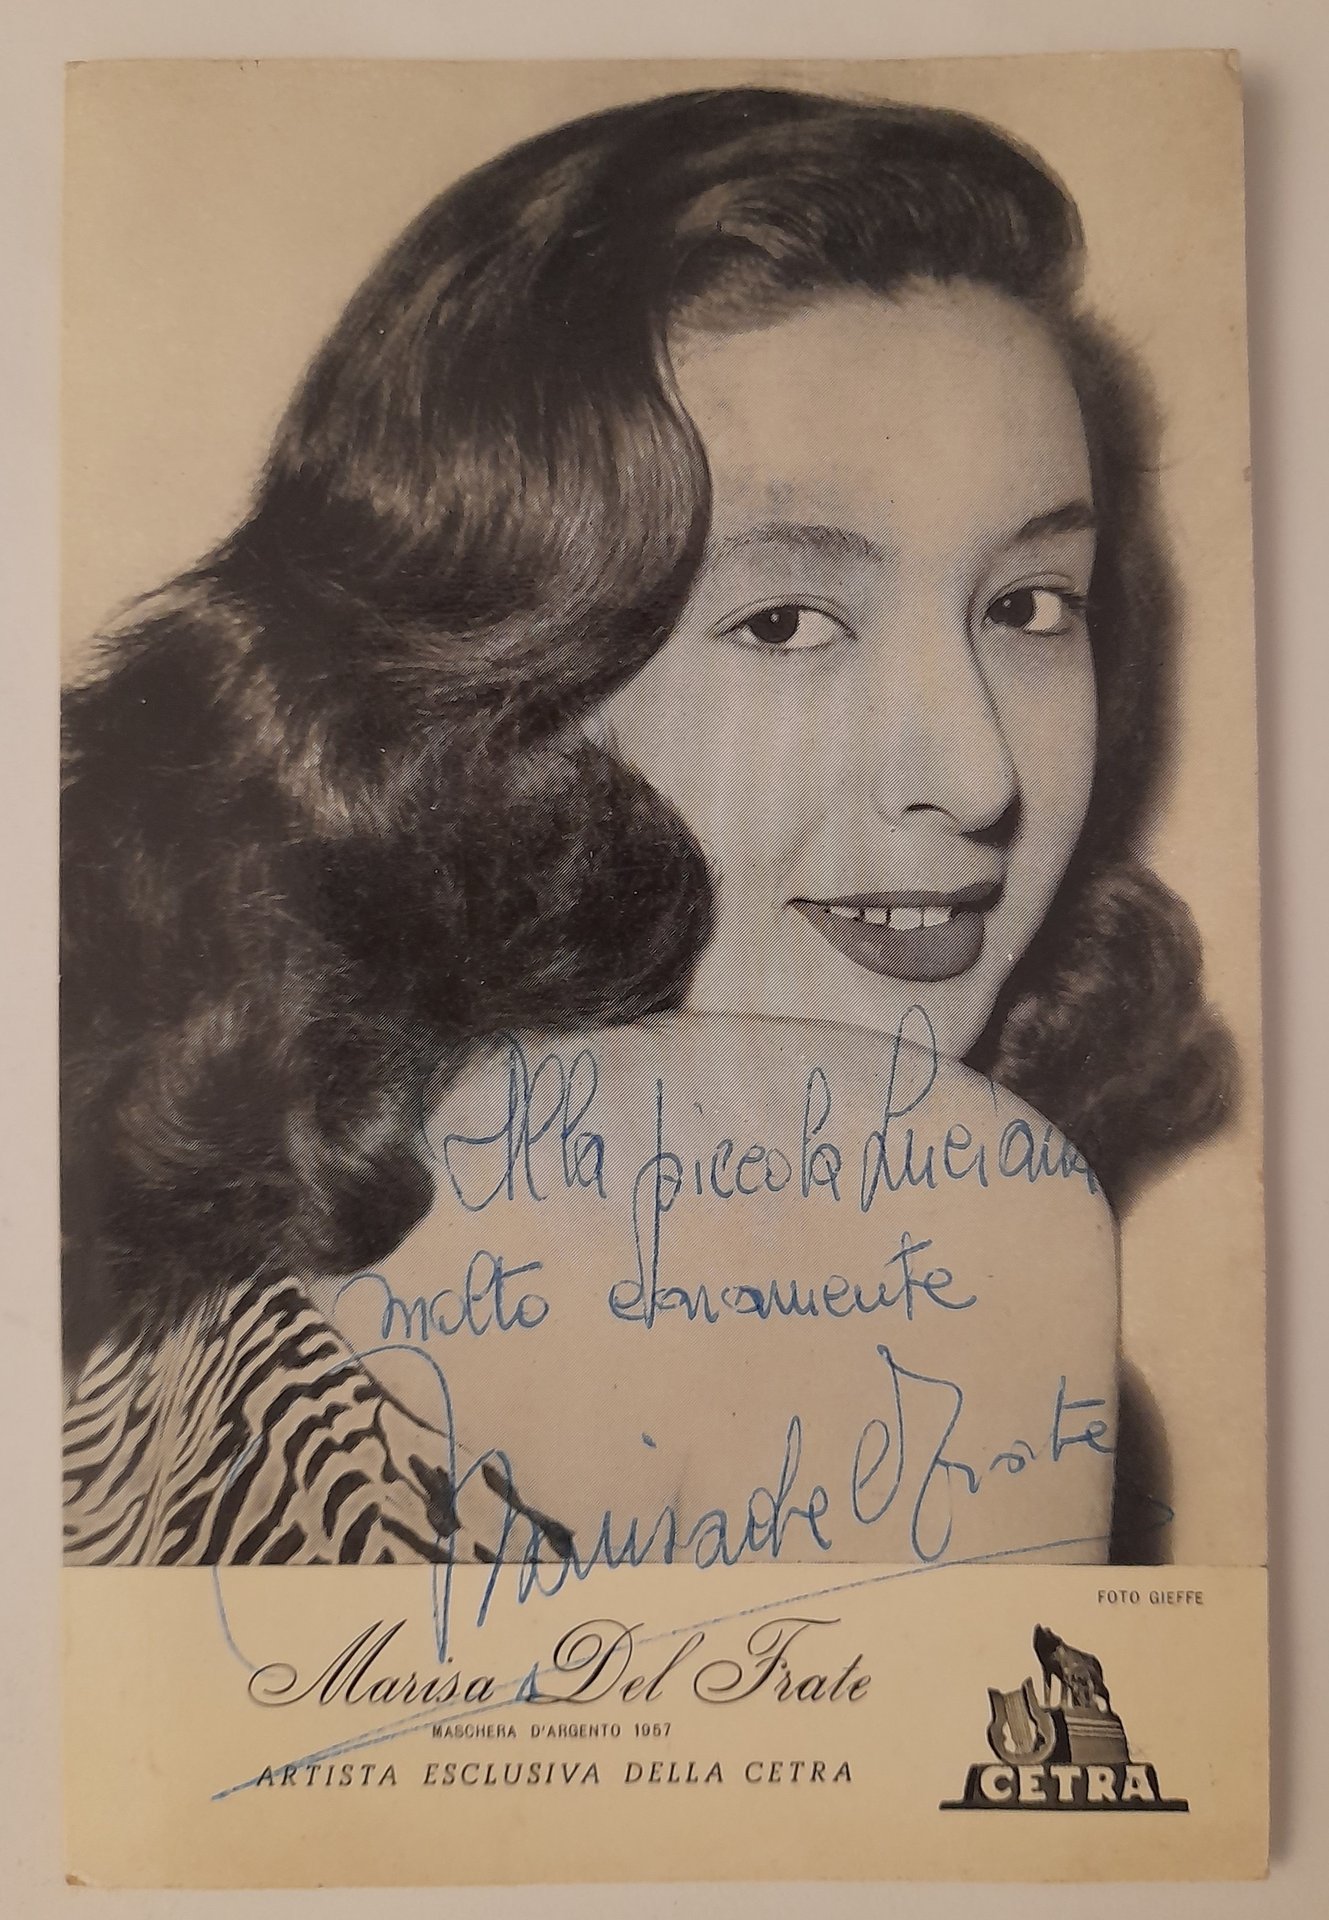 Alla piccola Luciana
molto caramente
Marisa del Frate
FOTO GIEFFE
Marisa Del Frate
MASCHERA D'ARGENTO 1957
ARTISTA ESCLUSIVA DELLA CETRA
CETRA